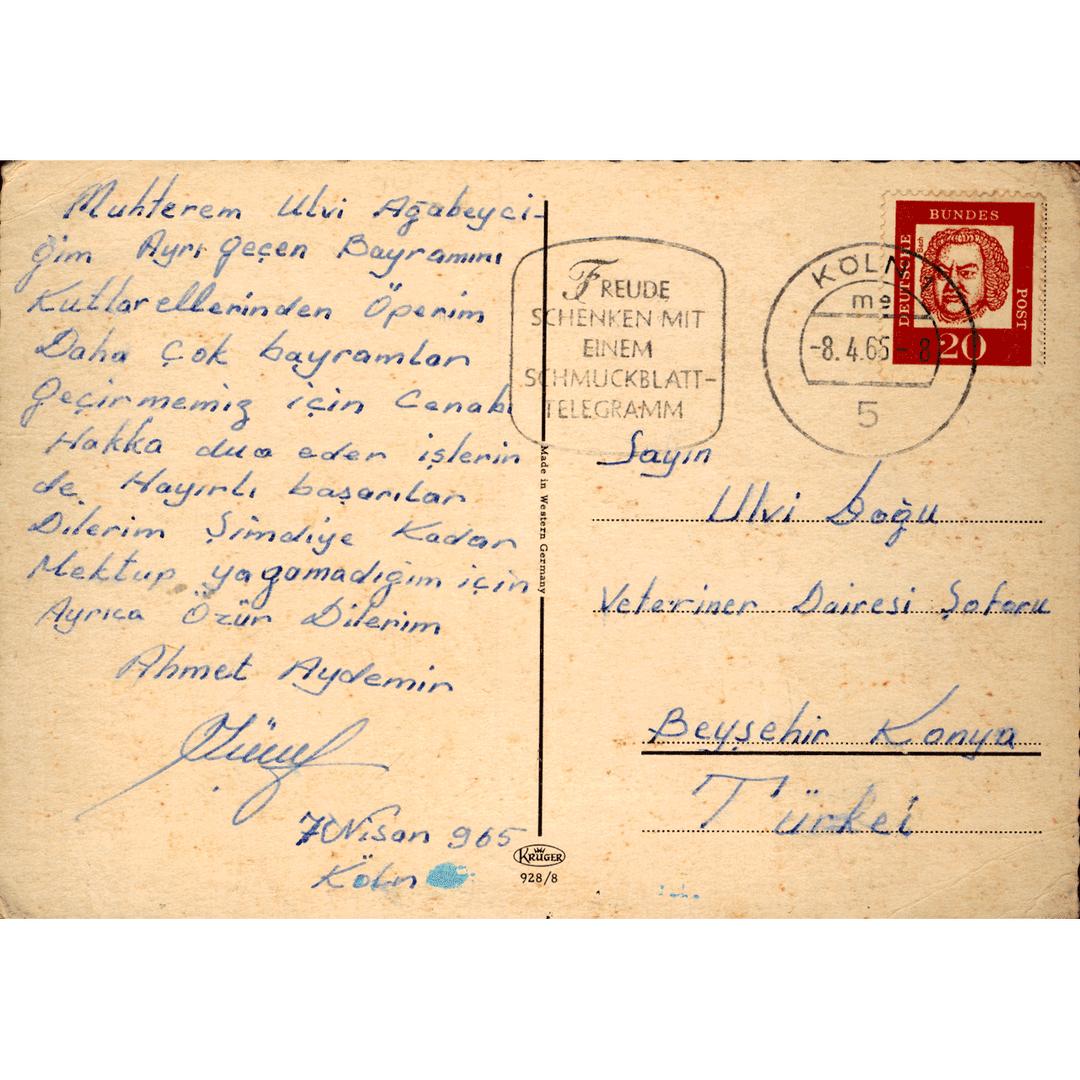 Muhterem Ulvi Ağabeyci-
ğim Ayrı geçen Bayramını
Kutlar ellerinden Öperim
Daha çok bayramlar
geçirmemiz için Cenabı
Hakka dua eder işlerin
de Hayırlı başarılar
Dilerim Şimdiye Kadar
Mektup yagamadığım için
Ayrıca Özür Dilerim
Ahmet Aydemir
7 Nisan 965
Köln
FREUDE
SCHENKEN MIT
EINEM
SCHMUCKBLATT-
TELEGRAMM
KÖLN 1
me
-8.4.65-8
5
BUNDES
DEUTSCHE
POST
Bach
20
Made in Western Germany
Sayın
Ulvi Doğu
Veteriner Dairesi Şoforu
Beyşehir Konya
Türkei
KRÜGER
928/8